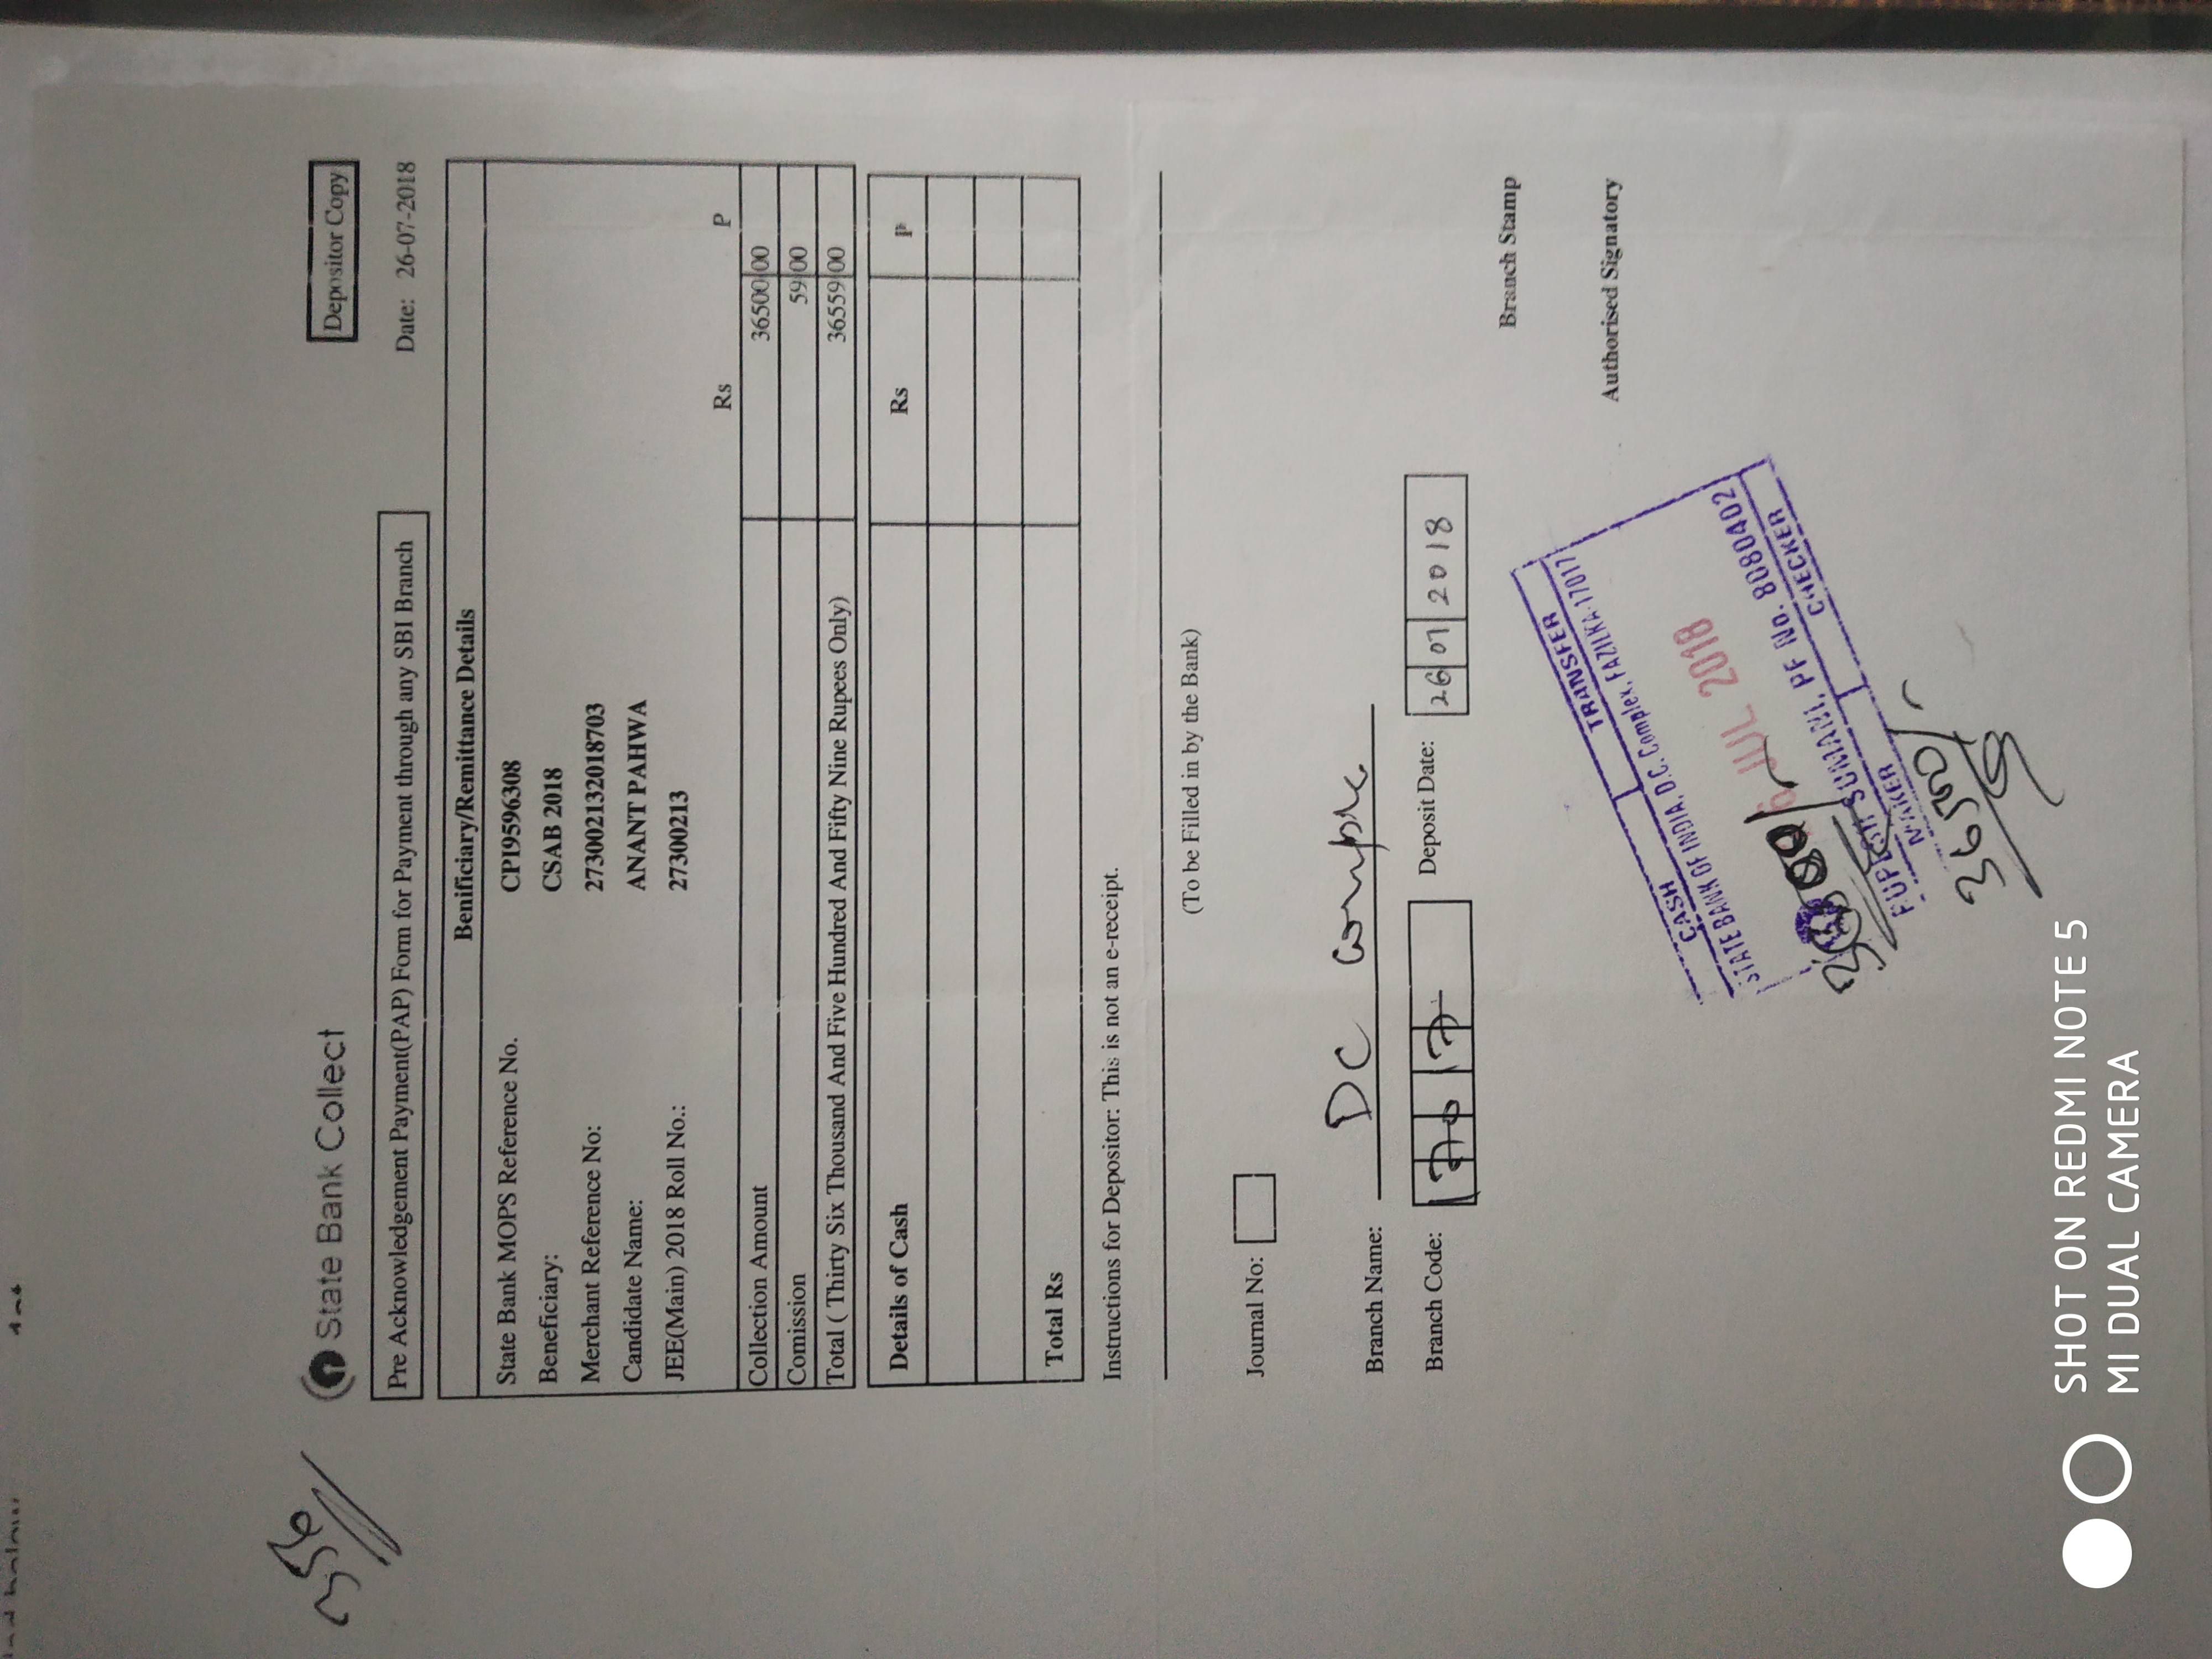 356
State Bank Collect
Depositor Copy
Pre Acknowledgement Payment(PAP) Form for Payment through any SBI Branch
Date: 26-07-2018
Benificiary/Remittance Details
State Bank MOPS Reference No. CPI9596308
Beneficiary: CSAB 2018
Merchant Reference No: 273002132018703
Candidate Name: ANANT PAHWA
JEE(Main) 2018 Roll No.: 27300213
Rs P
Collection Amount 36500 00
Comission 59 00
Total ( Thirty Six Thousand And Five Hundred And Fifty Nine Rupees Only) 36559 00
Details of Cash Rs P
Total Rs
Instructions for Depositor: This is not an e-receipt.
(To be Filled in by the Bank)
Journal No:
Branch Name: DC
Branch Code:
Deposit Date: 26 07 2018
Branch Stamp
Authorised Signatory
CASH TRANSFER
STATE BANK OF INDIA, D.C. Complex, FAZILKA-17017
JUL 2018
SUMANI, PF No. 8080402
MAKER CHECKER
36500/-
SHOT ON REDMI NOTE 5
MI DUAL CAMERA